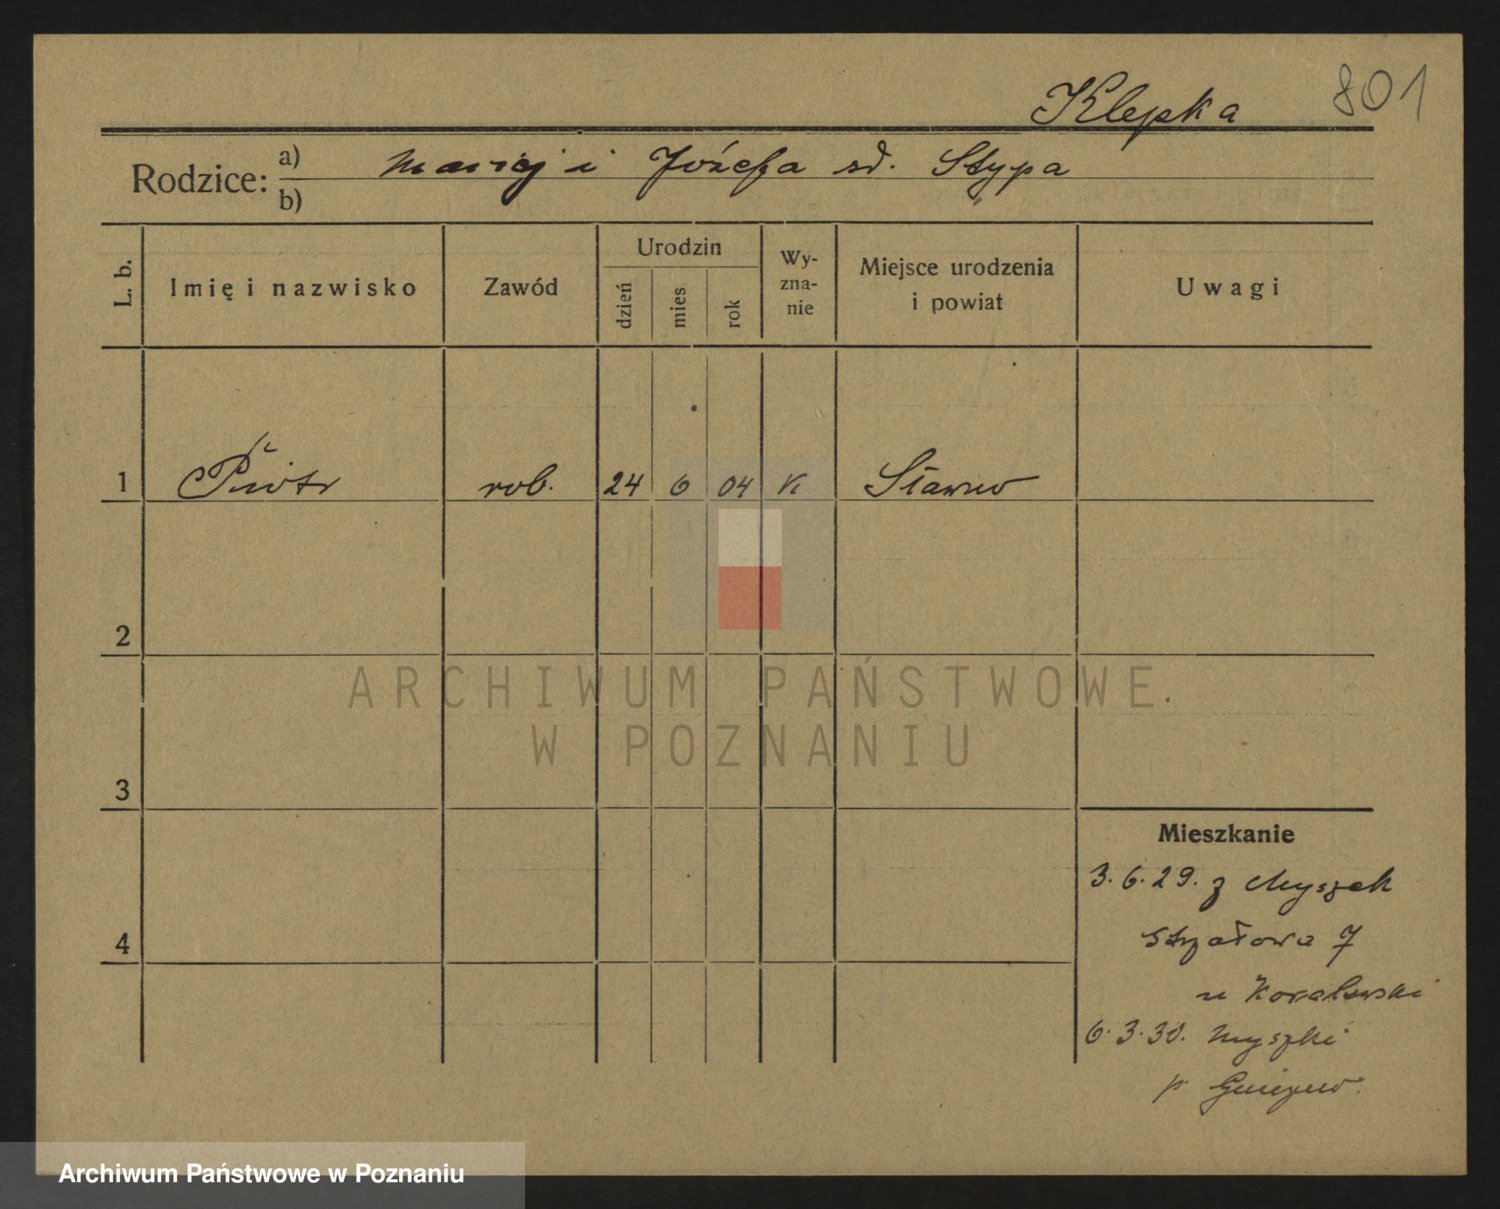 Klepka 801
Rodzice: a) Maciej i Józefa zd. Stypa
b)
L. b. Imię i nazwisko Zawód Urodzin dzień mies rok Wy-zna-nie Miejsce urodzenia i powiat Uwagi
1 Piotr rob. 24 6 04 K Sławno
2
3
4
Mieszkanie
3.6.29. z Myszek
Strzałowa 7
u Kowalewski
6.3.30. Myszki
p. Gniezno.
ARCHIWUM PAŃSTWOWE
W POZNANIU
Archiwum Państwowe w Poznaniu